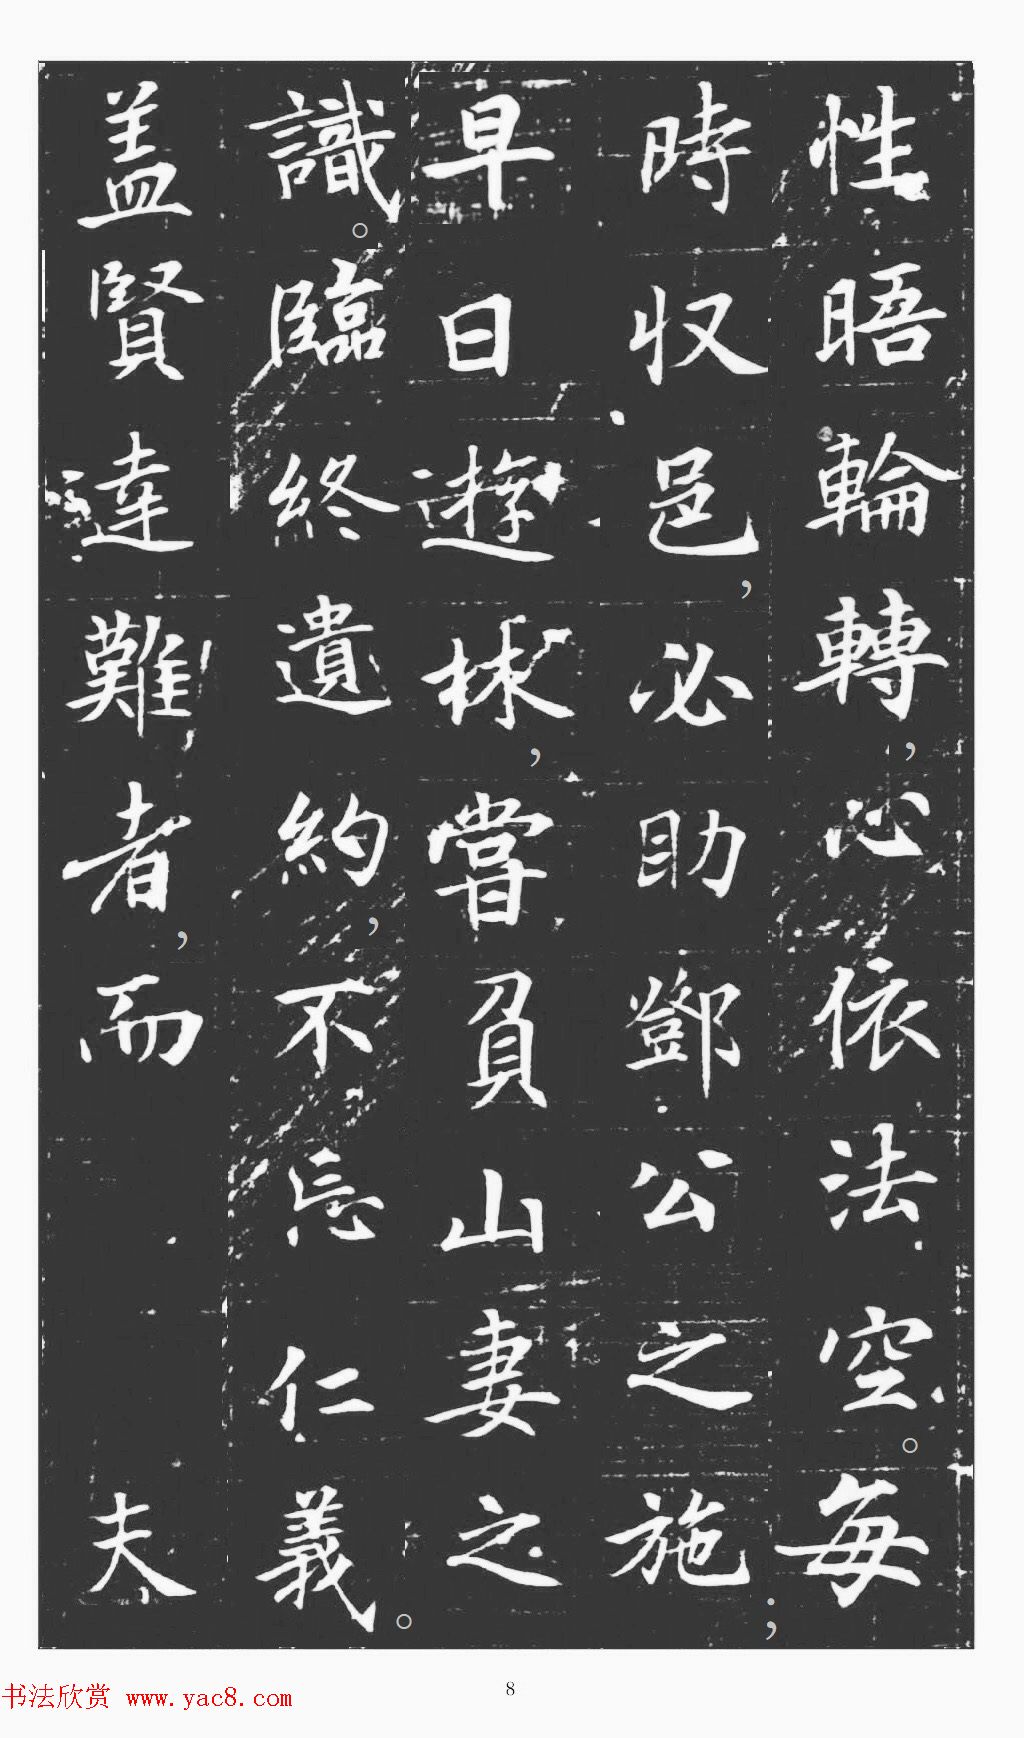 性晤輪轉，心依法空。每
時収邑，必助鄧公之施；
早日遊林，嘗負山妻之
識。臨終遺約，不忘仁義。
盖賢達難者，而夫
书法欣赏 www.yac8.com
8